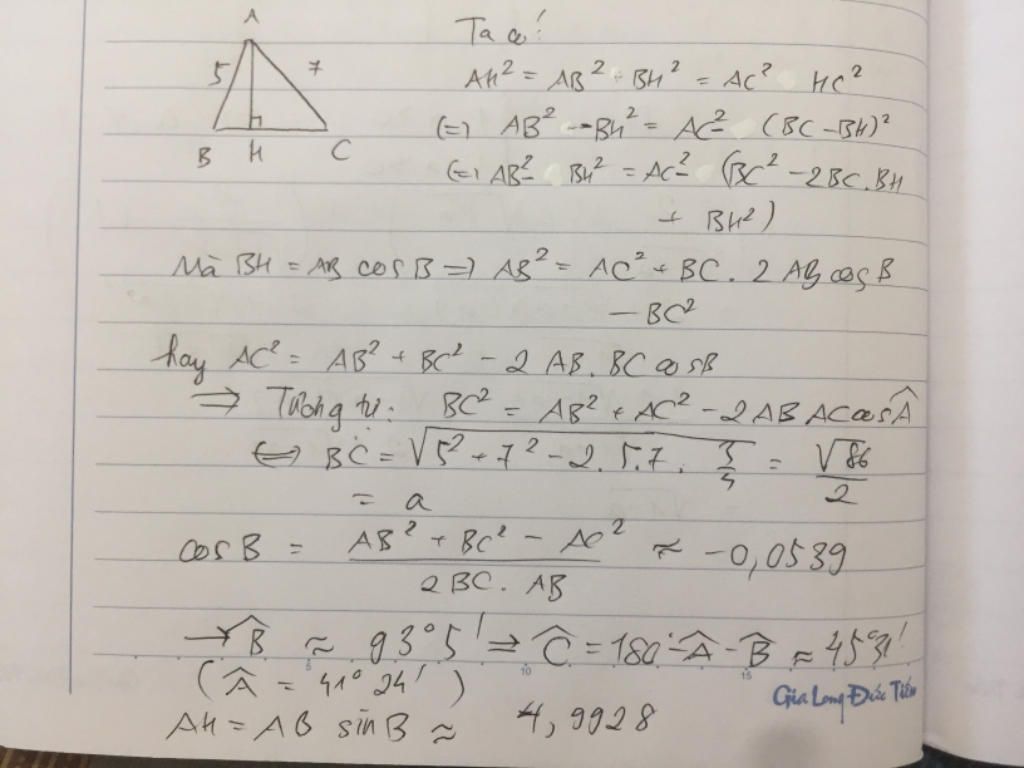 A
5
7
B H C
Ta có:
AH² = AB² - BH² = AC² HC²
(=) AB² - BH² = AC² - (BC - BH)²
(=) AB² - BH² = AC² - (BC² - 2BC.BH
+ BH²)
Mà BH = AB cosB => AB² = AC² + BC . 2 AB cosB
- BC²
hay AC² = AB² + BC² - 2 AB. BC cosB
=> Tương tự: BC² = AB² + AC² - 2 AB AC cosÂ
<=> BC = √(5² + 7² - 2. 5.7. 3/4) = √86/2
= a
cosB = (AB² + BC² - AC²)/(2BC. AB) ≈ -0,0539
→ B̂ ≈ 93°5' => Ĉ = 180° - Â - B̂ ≈ 45°31'
( Â = 41° 24' )
5 10 15
Gia Long Đức Tiến
AH = AB sin B ≈ 4,9928